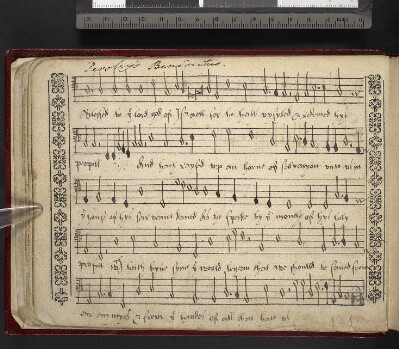 Benedictus.
Blessed be ye lord god of Israell for he hath vysyted & redemed hys
people And hath raysed up an horne of salvacyon unto us in
ye house of hys servaunt david As he spake by ye mouthe of hys holy
prophets hath byne synce ye world began that we should be saved from
our enemyes & from ye handes of all that hate us